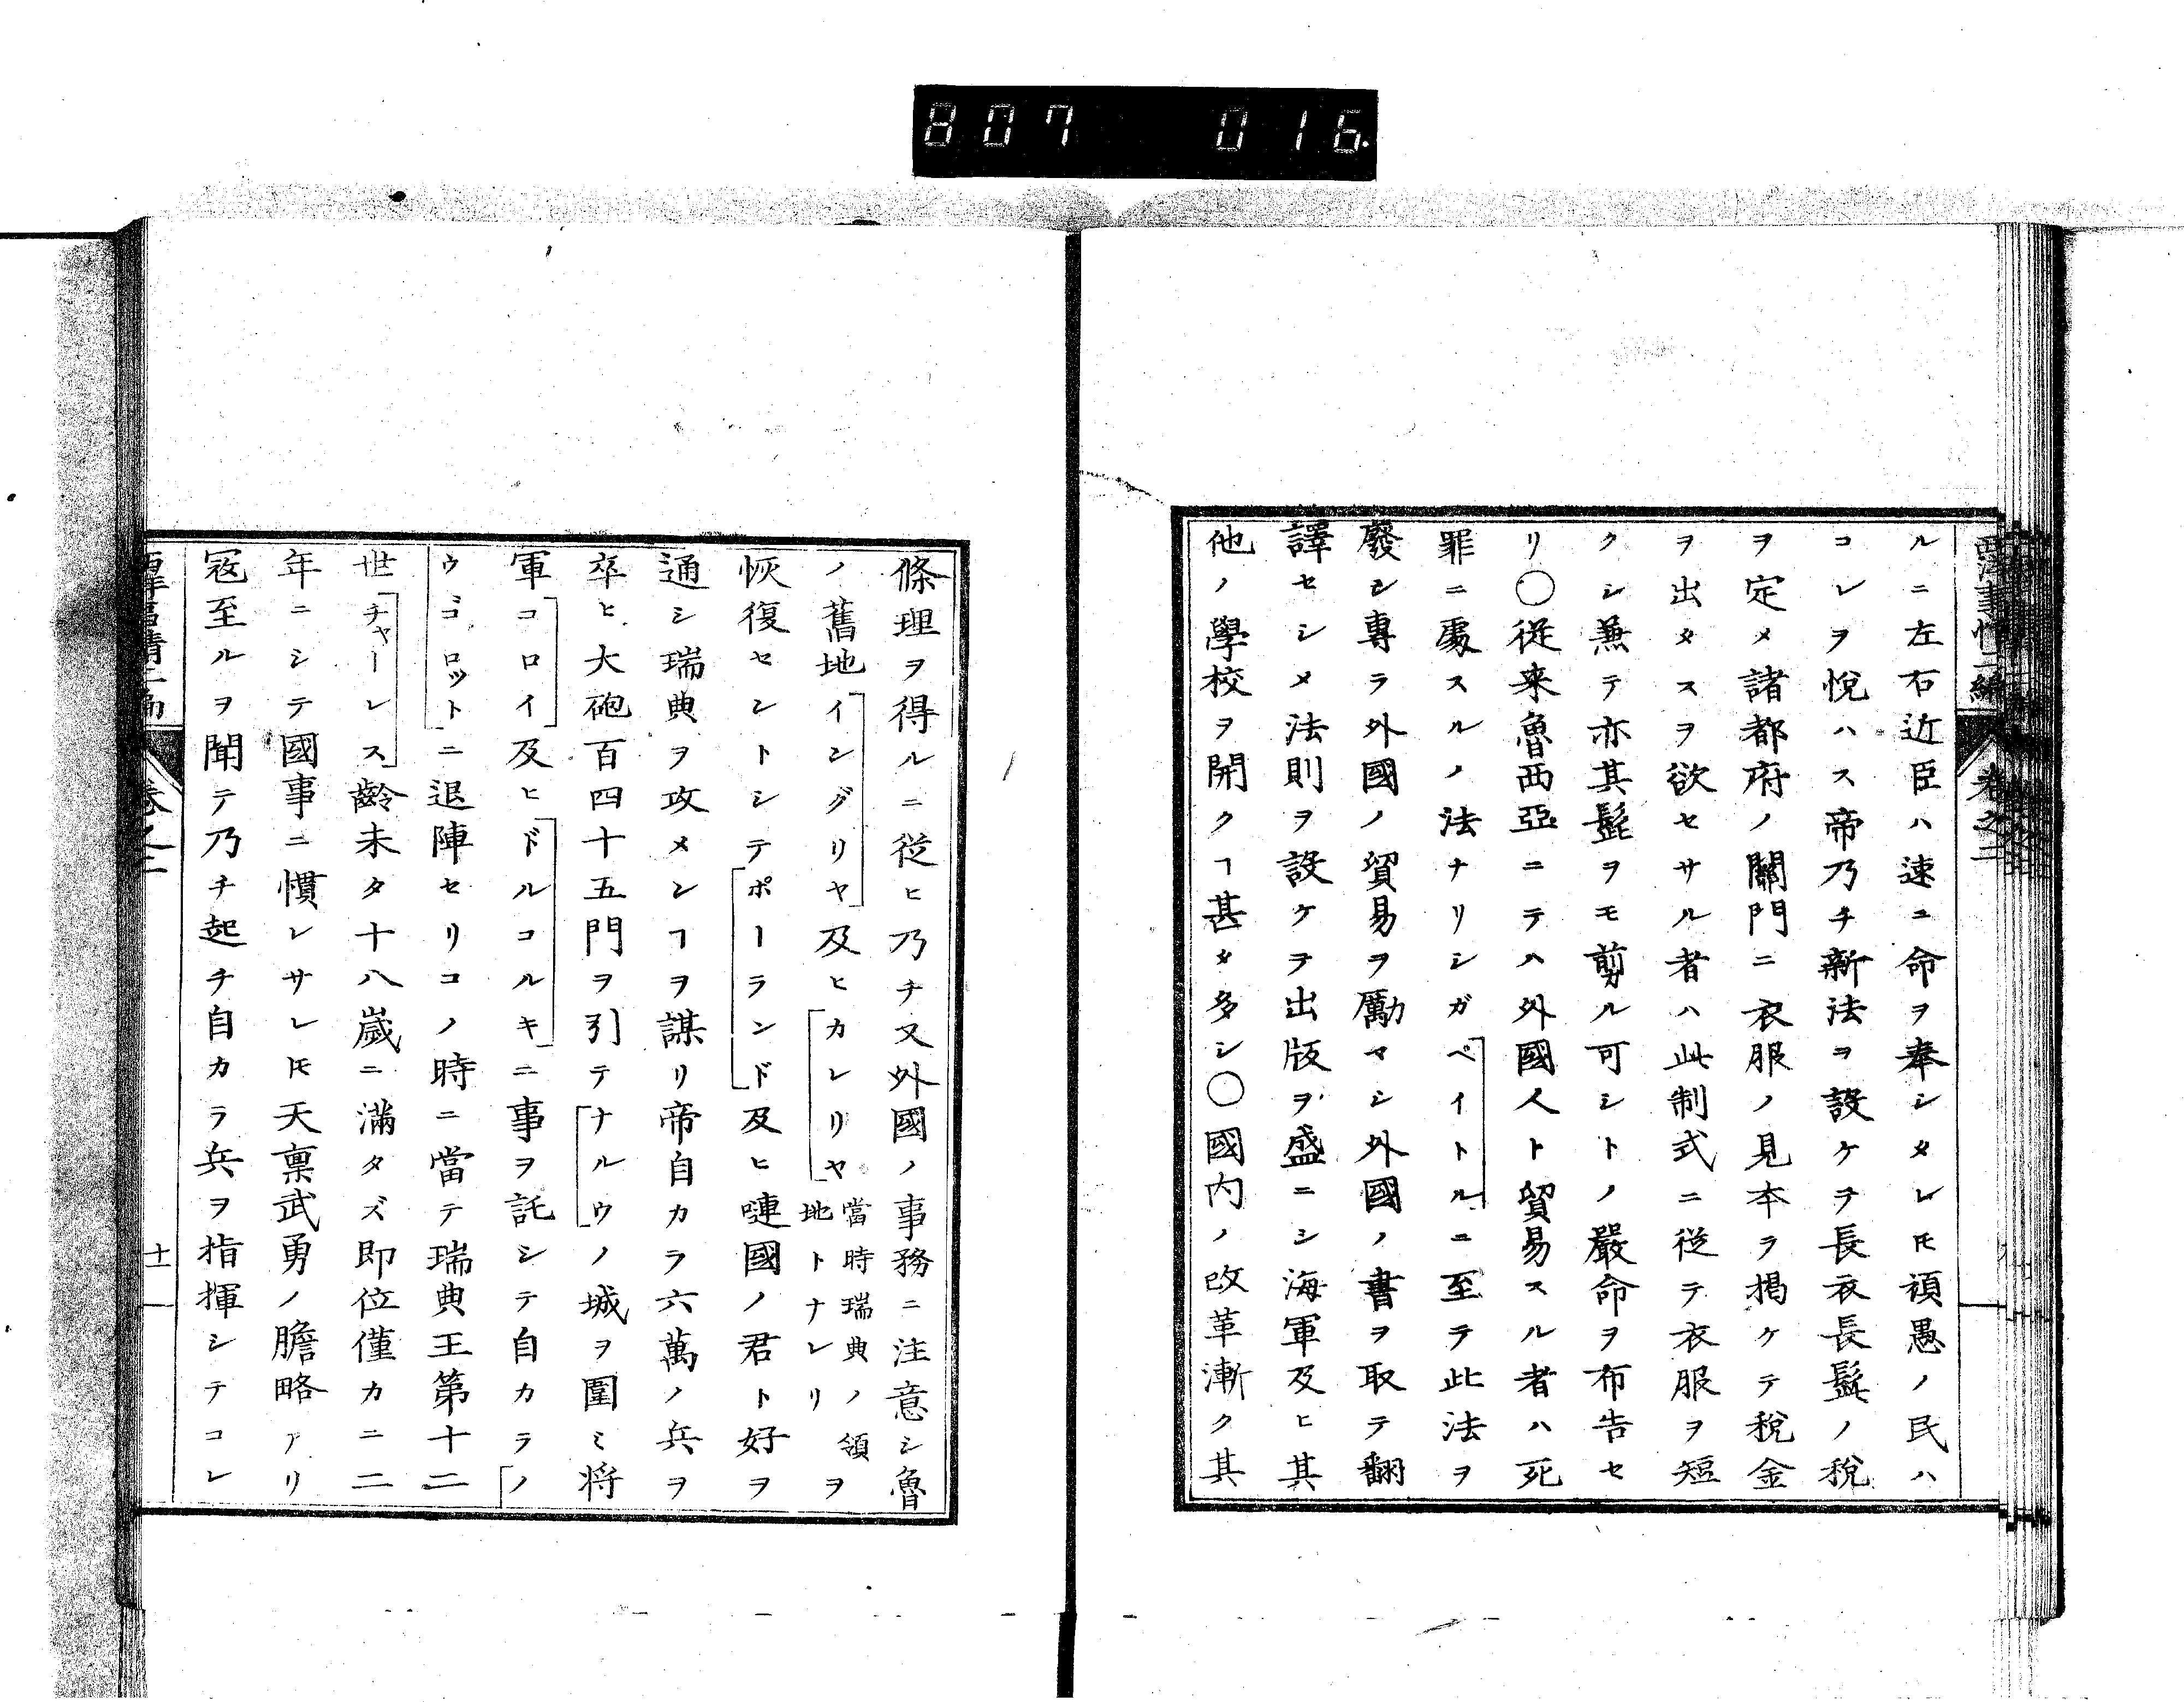 807 016.
西洋事情二編 卷之二
ルニ左右近臣ハ速ニ命ヲ奉シタレ𪜈頑愚ノ民ハ
コレヲ悅ハス帝乃チ新法ヲ設ケヲ長衣長鬚ノ稅
ヲ定メ諸都府ノ關門ニ衣服ノ見本ヲ揭ケテ稅金
ヲ出タスヲ欲セサル者ハ此制式ニ從テ衣服ヲ短
クシ兼テ亦其髭ヲモ剪ル可シトノ嚴命ヲ布告セ
リ〇從来魯西亞ニテハ外國人ト貿易スル者ハ死
罪ニ處スルノ法ナリシガペイトルニ至テ此法ヲ
廢シ專ラ外國ノ貿易ヲ勵マシ外國ノ書ヲ取テ翻
譯セシメ法則ヲ設ケヲ出版ヲ盛ニシ海軍及ヒ其
他ノ學校ヲ開クヿ甚タ多シ〇國内ノ改革漸ク其
條理ヲ得ルニ從ヒ乃チ又外國ノ事務ニ注意シ魯
ノ舊地イングリヤ及ヒカレリヤ當時瑞典ノ領地トナレリヲ
恢復セントシテポーランド及ヒ嗹國ノ君ト好ヲ
通シ瑞典ヲ攻メンヿヲ謀リ帝自カラ六萬ノ兵ヲ
卒ヒ大砲百四十五門ヲ引テナルウノ城ヲ圍ミ将
軍コロイ及ヒドルコルキニ事ヲ託シテ自カラノ
ウゴロットニ退陣セリコノ時ニ當テ瑞典王第十二
世チャーレス齡未タ十八歲ニ滿タズ即位僅カニ二
年ニシテ國事ニ慣レサレ𪜈天稟武勇ノ膽略アリ
冦至ルヲ聞テ乃チ起チ自カラ兵ヲ指揮シテコレ
西洋事情二編 卷之二 十一